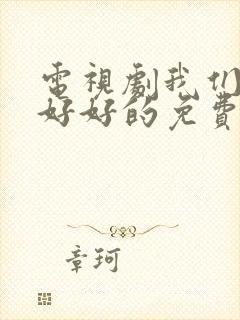 電視劇我们
好好的免費
章珂